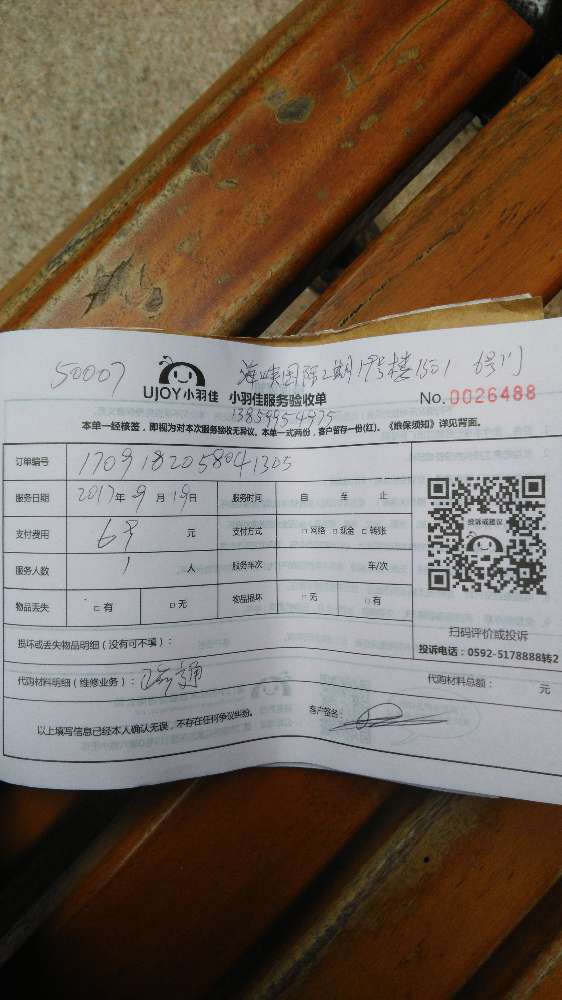 50007 海峡国际2期19号楼1501
UJOY小羽佳 小羽佳服务验收单 No.0026488
13859954975
本单一经核签，即视为对本次服务验收无异议。本单一式两份，客户留存一份(红)。《维保须知》详见背面。
订单编号 1709182058041305
服务日期 2017年9月19日 服务时间 自 至 止
支付费用 68元 支付方式 □网络 □现金 □转账
服务人数 1人 服务车次 车/次
物品丢失 □有 □无 物品损坏 □无 □有
投诉或建议
扫码评价或投诉
投诉电话：0592-5178888转2
损坏或丢失物品明细（没有可不填）：
代购材料明细（维修业务）： 代购材料总额： 元
以上填写信息已经本人确认无误，不存在任何争议纠纷。 客户签名：